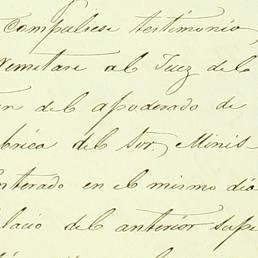 Compulsese testimonio
remitase al Juez de lo
n del apoderado de
brica del tor Minis
nterado en el mismo dia
lacio del anterior supe